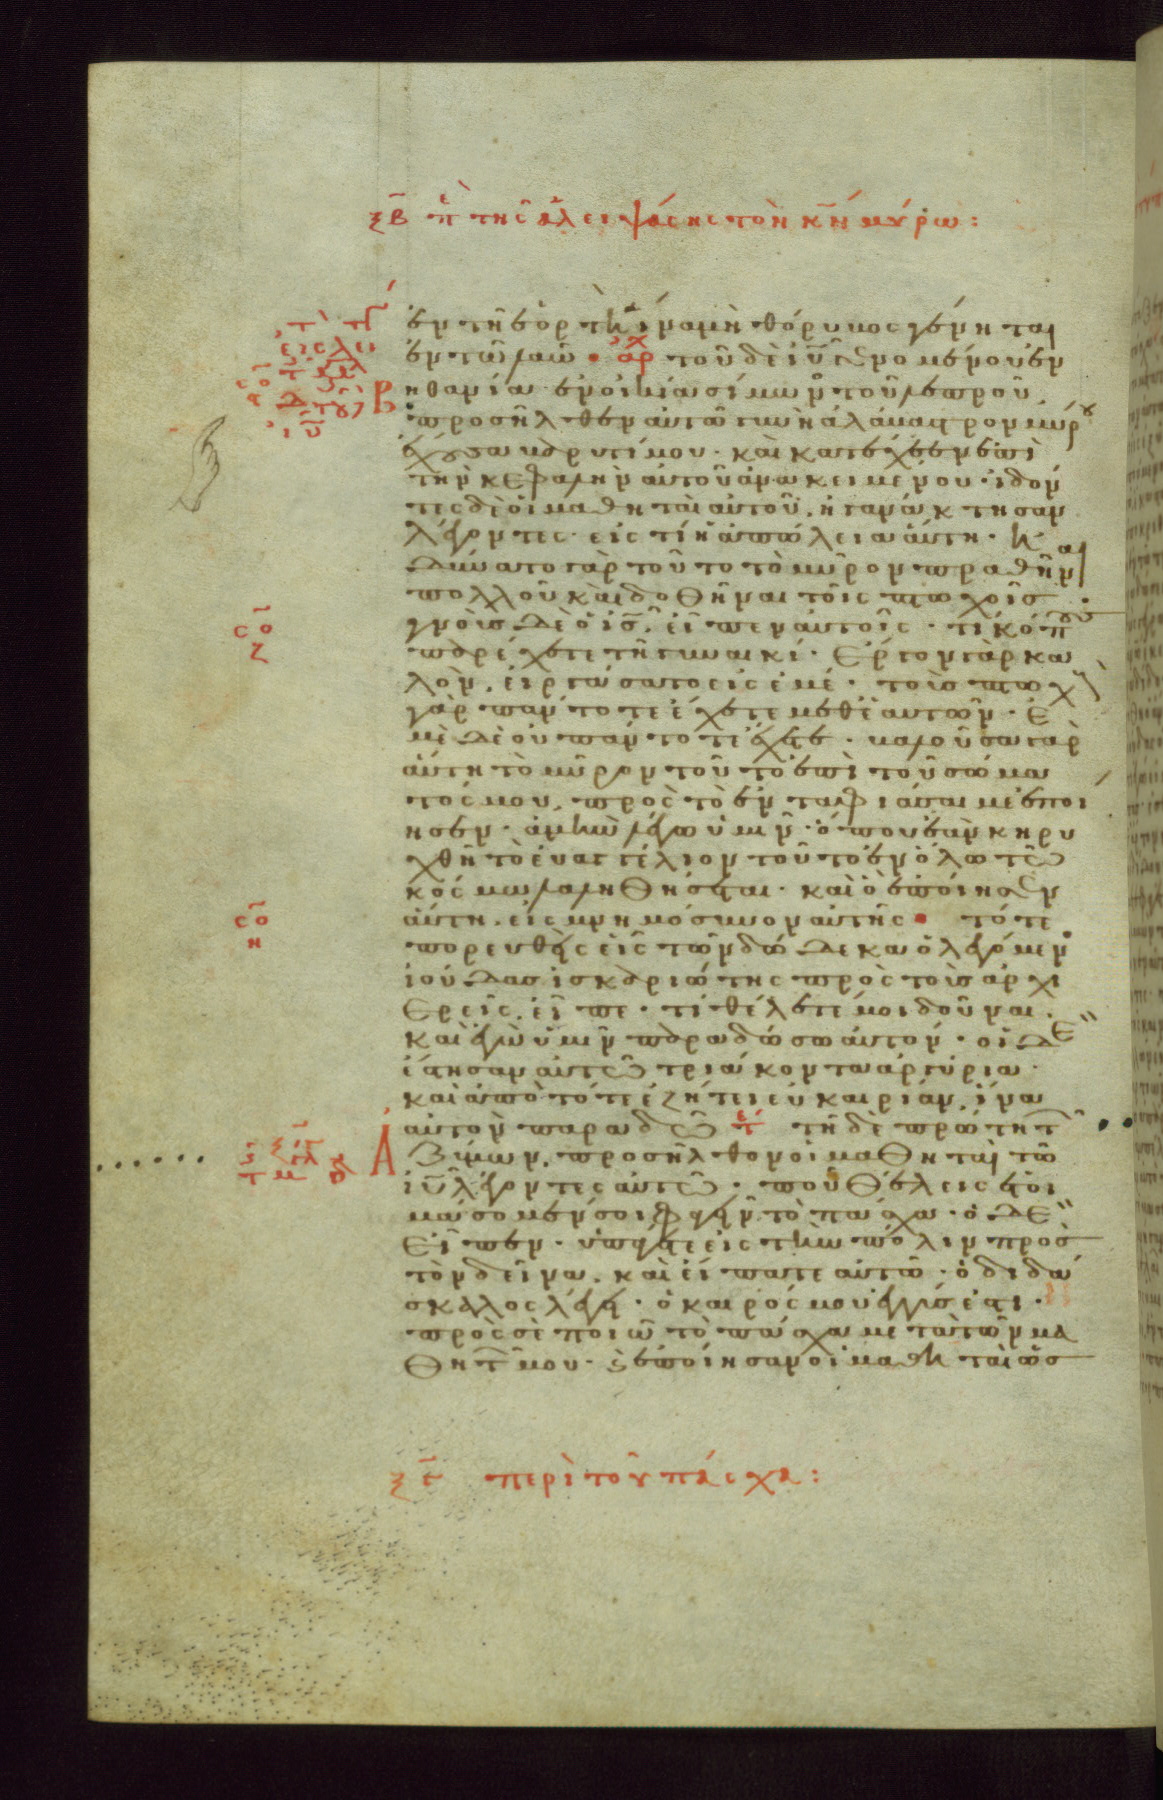 ξβ π τῆς ἀλειψάσης τὸν κν μύρω:
ἐν τῆ ἑορτῆ ἵνα μὴ θόρυβος γένηται
ἐν τῶ λαῶ · αρχ τοῦ δὲ ιυ γενομένου ἐν
βηθανία ἐν οἰκία σίμωνος τοῦ λεπροῦ,
προσῆλθεν αὐτῶ γυνὴ ἀλάβαστρον μύρου
ἔχουσα βαρυτίμου · καὶ κατέχεεν ἐπὶ
τὴν κεφαλὴν αὐτοῦ ἀνακειμένου · ἰδόν
τες δὲ οἱ μαθηταὶ αὐτοῦ, ἠγανάκτησαν
λέγοντες · εἰς τί ἡ ἀπώλεια αὕτη ·
ἠδύνατο γὰρ τοῦτο τὸ μύρον πραθῆναι
πολλοῦ καὶ δοθῆναι τοῖς πτωχοῖς ·
σο
ζ
γνοὺς δὲ ὁ ις, εἶπεν αὐτοῖς · τί κόπους
παρέχετε τῆ γυναικί · ἔργον γὰρ κα
λὸν, εἰργάσατο εἰς ἐμέ · τοὺς πτωχοὺς
γὰρ πάντοτε ἔχετε μεθ' ἑαυτῶν · ἐ
μὲ δὲ οὐ πάντοτε ἔχετε · βαλοῦσα γὰρ
αὕτη τὸ μύρον τοῦτο ἐπὶ τοῦ σώμα
τός μου, πρὸς τὸ ἐνταφιάσαι με ἐποί
ησεν · ἀμὴν λέγω ὑμῖν · ὅπου ἐὰν κηρυ
χθῆ τὸ εὐαγγέλιον τοῦτο ἐν ὅλω τῶ
κόσμω λαληθήσεται · καὶ ὃ ἐποίησεν
σο
η
αὕτη, εἰς μνημόσυνον αὐτῆς · τότε
πορευθεὶς εἷς τῶν δώδεκα ὁ λεγόμενος
ἰούδας ἰσκαριώτης πρὸς τοὺς ἀρχι
ερεῖς, εἶπε · τί θέλετέ μοι δοῦναι,
καὶ ἐγὼ ὑμῖν παραδώσω αὐτόν · οἱ δὲ
ἔστησαν αὐτῶ τριάκοντα ἀργύρια ·
καὶ ἀπὸ τότε ἐζήτει εὐκαιρίαν, ἵνα
αὐτὸν παραδῶ τῆ δὲ πρώτη τῶν
ἀζύμων, προσῆλθον οἱ μαθηταὶ τῶ
ιυ λέγοντες αὐτῶ · ποῦ θέλεις ἑτοι
μάσομέν σοι φαγεῖν τὸ πάσχα · ὁ δὲ
εἶπεν · ὑπάγετε εἰς τὴν πόλιν πρὸς
τὸν δεῖνα, καὶ εἴπατε αὐτῶ · ὁ διδά
σκαλος λέγει · ὁ καιρός μου ἐγγύς ἐστι ·
πρὸς σὲ ποιῶ τὸ πάσχα μετὰ τῶν μα
θητῶν μου · καὶ ἐποίησαν οἱ μαθηταὶ ὡς
ξγ περὶ τοῦ πάσχα: